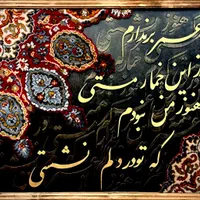 همه عمر برندارم
سر از این خمار مستی
که هنوز من نبودم
که تو در دلم نشستی